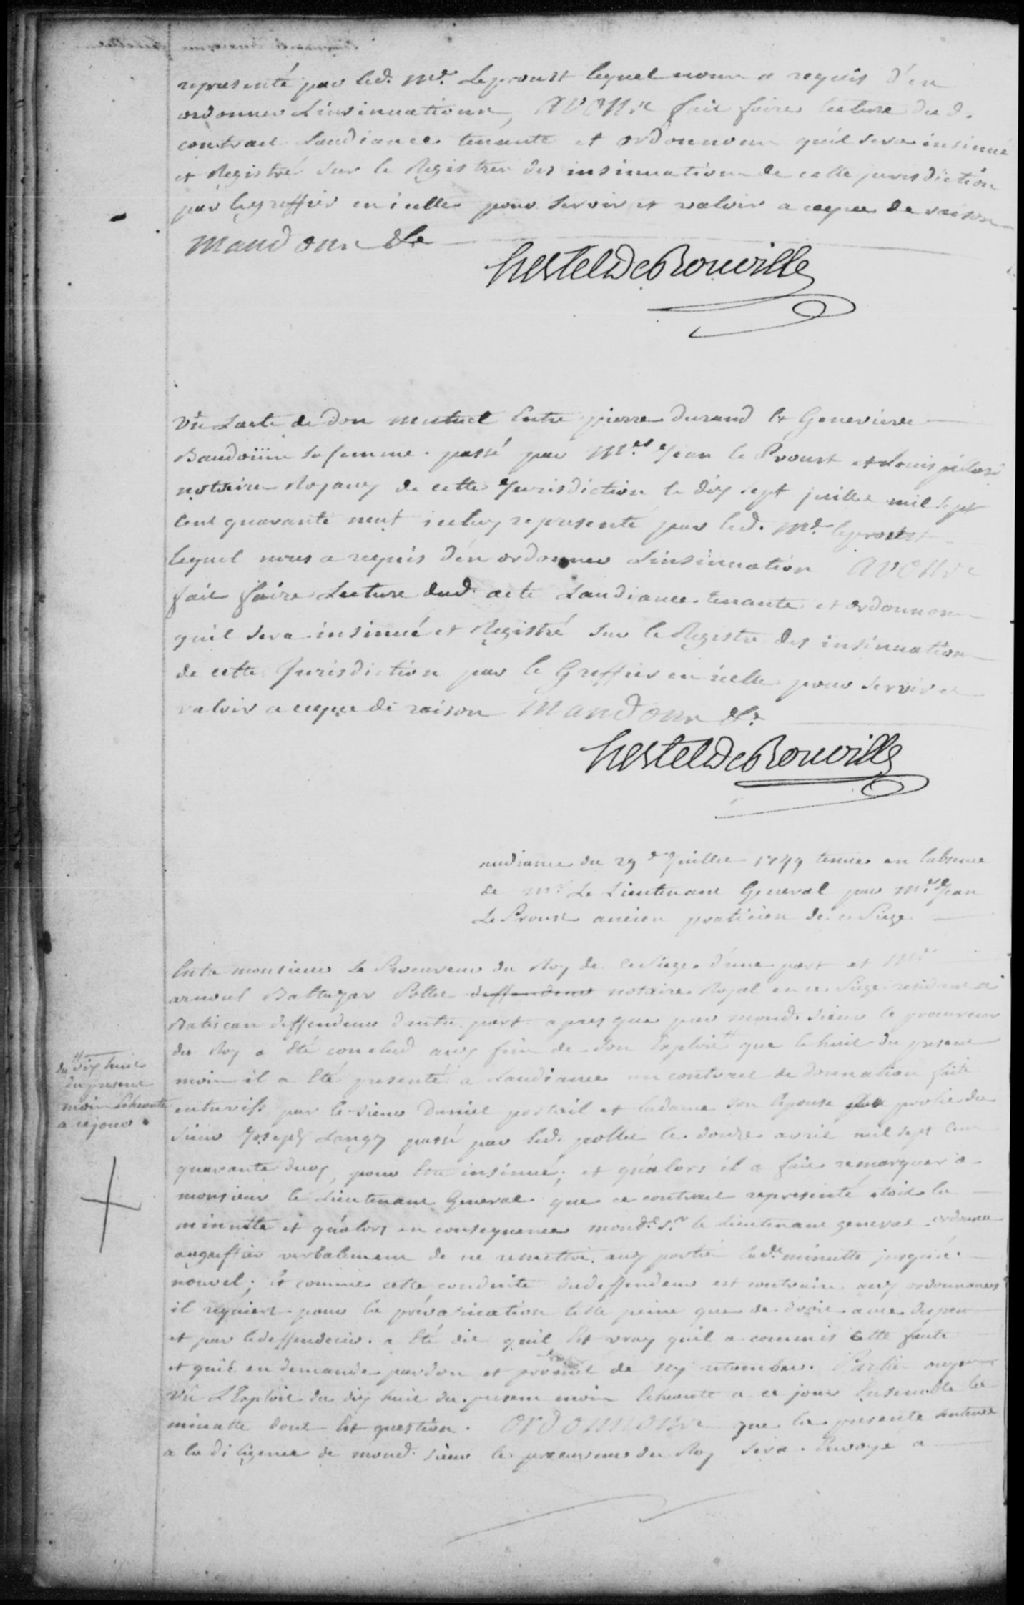 representé par led. Mr. Leproust lequel nous a requis d'en
ordonner Linsinuationn, AVONS fait faire lecture dud.
contract Laudiance tenante et ordonnons quil sera insinué
et Registré sur le Registre des insinuations de cette jurisdiction
par le greffier en icelle pour servir et valoir a ce que de raison
Mandons &c
hertel De Rouville
Vû Lacte de don mutuel Entre pierre durand et Genevieve
Baudoüin sa femme passé par Mes. Jean le Proust et Louis pillard
notaires Royaux de cette Jurisdiction le dix sept juillet mil sept
cent quarante neuf icelui representé par led. Mr. leproust
lequel nous a requis d'en ordonner Linsinuation AVONS
fait faire Lecture dud. acte Laudiance tenante et ordonnons
quil sera insinué et Registré sur le Registre des insinuations
de cette Jurisdiction par le Greffier en icelle pour servir et
valoir a ce que de raison Mandons &c.
hertel De Rouville
audiance du 29e Juillet 1749 tenüe en labsence
de Mr. Le Lieutenant General par Mr. Jean
Le Proust ancien praticien de ce Siege
Entre monsieur Le Procureur du Roy de ce Siege d'une part et Mr.
arnoul Baltazar Pollet deffendeur notaire Royal en ce Siege resident a
Batiscan deffendeur dautre part apres que par mond. sieur le procureur
du Roy a été conclud aux fins de son Exploit que le huit du present
mois il a été presenté a Laudiance un contract de donnation faite
entrevifs par le sieur Daniel portail et ladame son Epouse au profit du
sieur Joseph Langy passé par led. pollet le douze avril mil sept cent
quarante deux, pour être insinué; et qualors il a fait remarquer a
monsieur le Lieutenant General que ce contract representé etoit la
minutte et qualors en consequence mond. Sr. le Lieutenant general ordonna
augreffier verbalement de ne remettre aux parties lade. minutte jusqua
nouvel; et comme cette conduite dudeffendeur est contraire aux ordonnances
il requiert pour la prévarication telle peine que de droit avec depens
et par ledeffendeur a été dit quil Est vray quil a commis cette faute
et quil en demande pardon et promet de ny retomber. Parties ouyes
Vû L'Exploit du dix huit du present mois Echeante a ce jour Ensemble la
minutte dont Est question. ORDONNONS que la presente sentence
a la diligence de mond. sieur le procureur du Roy sera Envoyé a
du dix huit
du present
mois Echeante
a ce jour